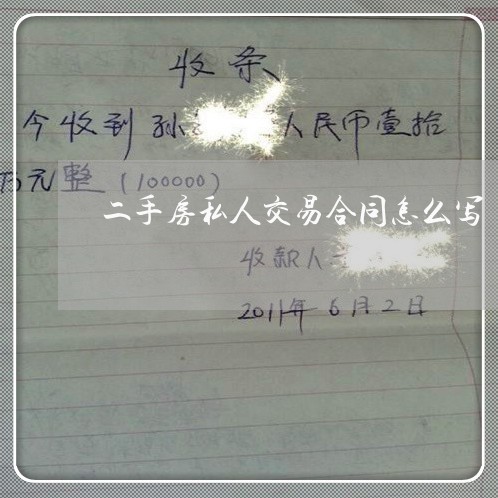 收条
今收到孙 人民币壹拾
万元整(100000)
二手房私人交易合同怎么写
收款人
2011年6月2日